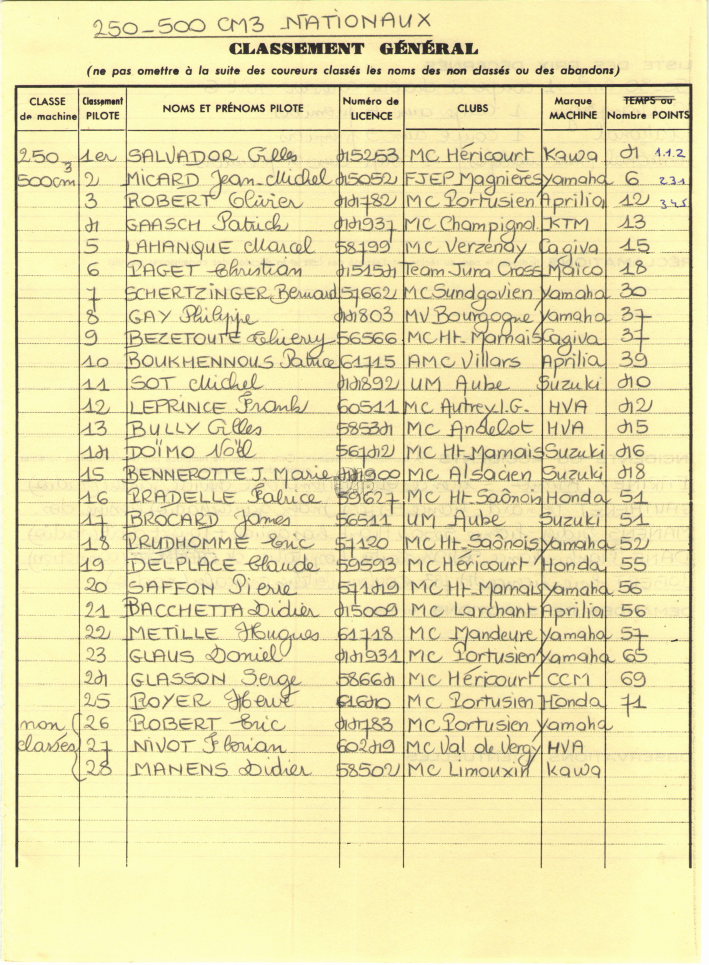 250-500 CM3 NATIONAUX
CLASSEMENT GÉNÉRAL
(ne pas omettre à la suite des coureurs classés les noms des non classés ou des abandons)
CLASSE de machine Classement PILOTE NOMS ET PRÉNOMS PILOTE Numéro de LICENCE CLUBS Marque MACHINE TEMPS ou Nombre POINTS
250- 1er SALVADOR Gilles 45253 MC Héricourt Kawa 4 1.1.2
500cm3 2 MICARD Jean-Michel 45052 FJEP Magnières Yamaha 6 2.3.1
3 ROBERT Olivier 44782 MC Portusien Aprilia 12 3.4.5
4 GAASCH Patrick 44937 MC Champignol KTM 13
5 LAHANQUE Marcel 58799 MC Verzenay Cagiva 15
6 PAGET Christian 45154 Team Jura Cross Maico 18
7 SCHERTZINGER Bernard 57662 MC Sundgovien Yamaha 30
8 GAY Philippe 44803 MV Bourgogne Yamaha 37
9 BEZETOUTE Thierry 56566 MC Ht-Marnais Cagiva 37
10 BOUKHENNOUS Patrice 61715 AMC Villars Aprilia 39
11 SOT Michel 44892 UM Aube Suzuki 40
12 LEPRINCE Frank 60511 MC Autrey.l.G. HVA 42
13 BULLY Gilles 58534 MC Andelot HVA 45
14 DOÏMO Noël 56142 MC Ht-Marnais Suzuki 46
15 BENNEROTTE J. Marie 44900 MC Alsacien Suzuki 48
16 PRADELLE Fabrice 59627 MC Ht-Saônois Honda 51
17 BROCARD James 56511 UM Aube Suzuki 51
18 PRUDHOMME Eric 57120 MC Ht-Saônois Yamaha 52
19 DELPLACE Claude 59593 MC Héricourt Honda 55
20 SAFFON Pierre 57149 MC Ht-Marnais Yamaha 56
21 BACCHETTA Didier 45009 MC Larchant Aprilia 56
22 METILLE Hugues 61718 MC Mandeure Yamaha 57
23 GLAUS Daniel 44931 MC Portusien Yamaha 65
24 GLASSON Serge 58664 MC Héricourt CCM 69
25 ROYER Hervé 61640 MC Portusien Honda 71
non 26 ROBERT Eric 44783 MC Portusien Yamaha
classés 27 NIVOT Florian 60249 MC Val de Vergy HVA
28 MANENS Didier 58502 MC Limouxin Kawa